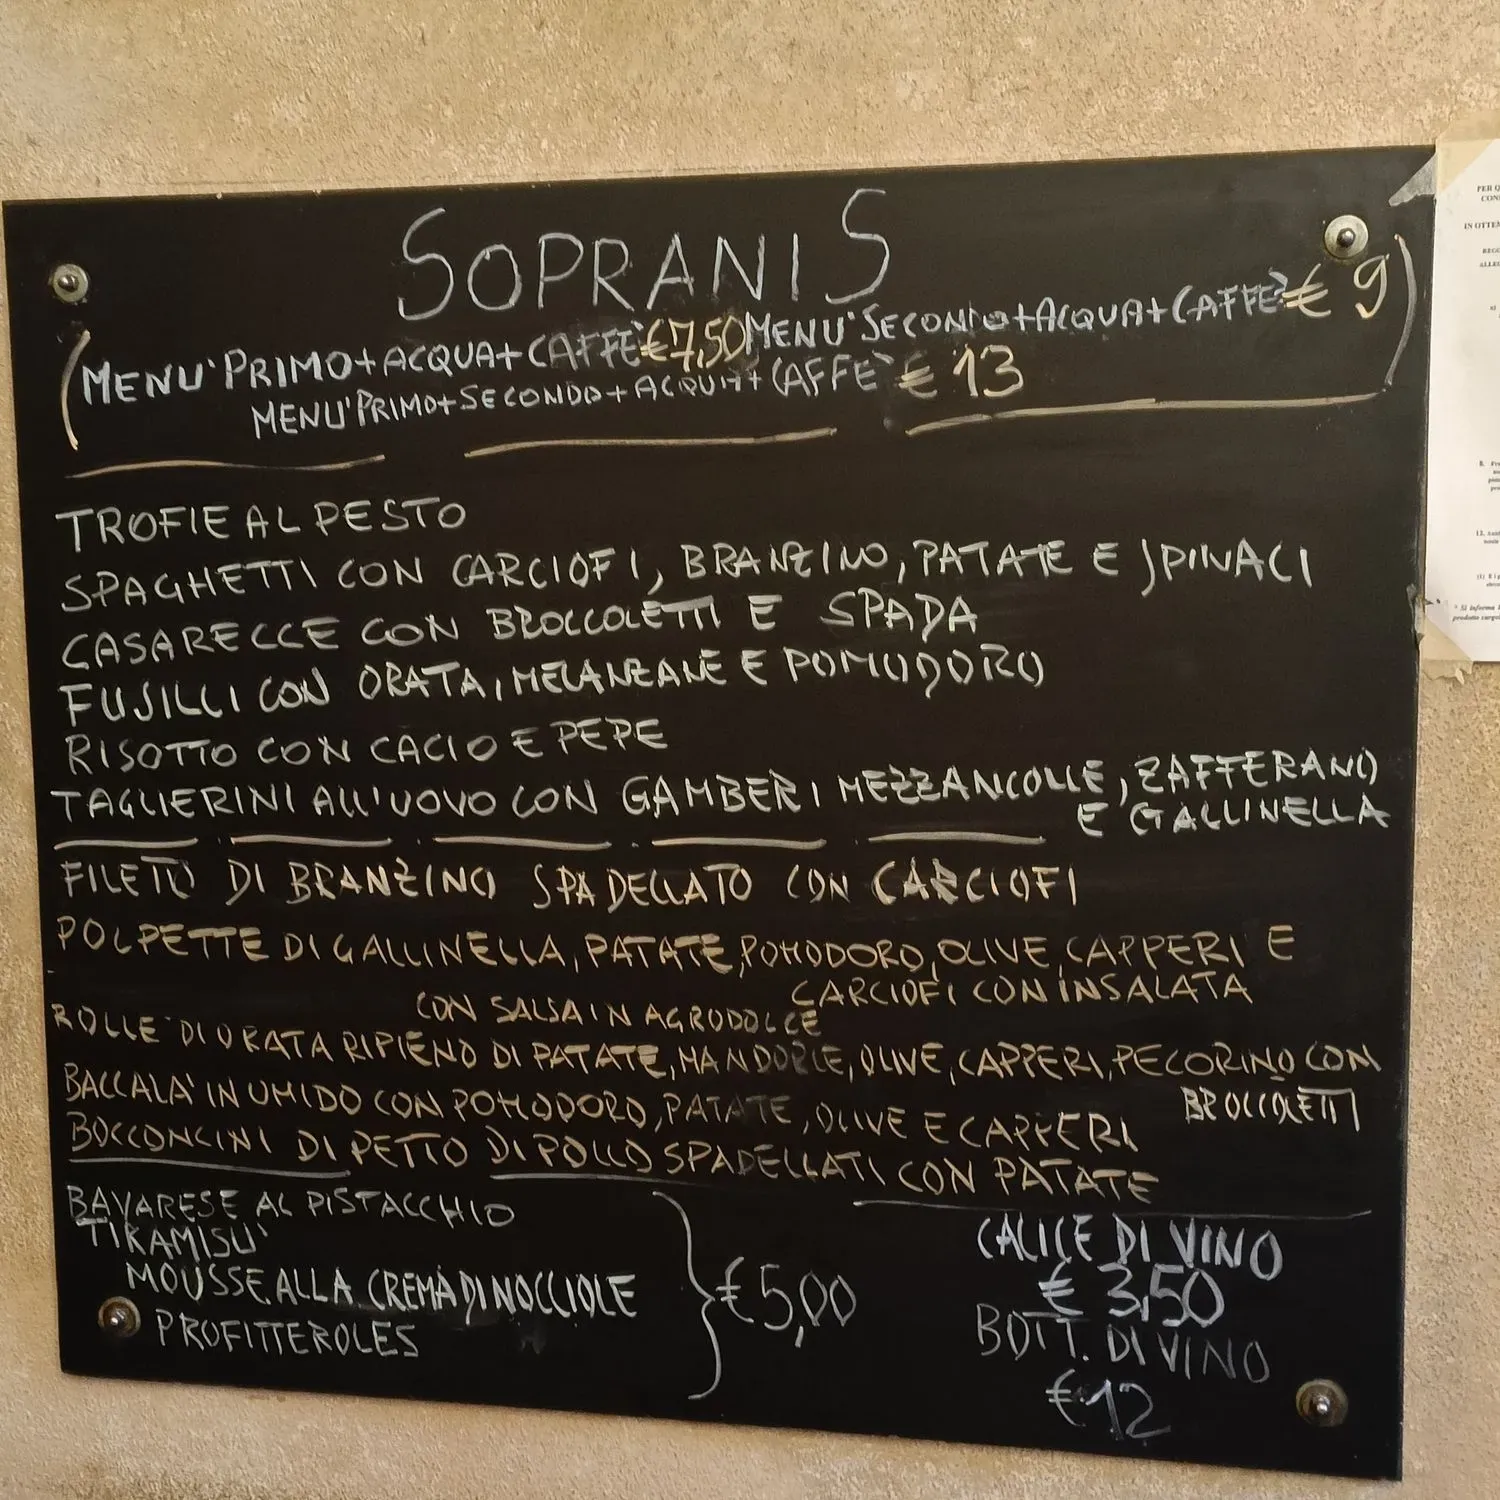 SOPRANIS
MENU' PRIMO+ACQUA+CAFFE' €7,50 MENU' SECONDO+ACQUA+CAFFE' € 9
MENU' PRIMO+SECONDO+ACQUA+CAFFE' € 13
TROFIE AL PESTO
SPAGHETTI CON CARCIOFI, BRANZINO, PATATE E SPINACI
CASARECCE CON BROCCOLETTI E SPADA
FUSILLI CON ORATA, MELANZANE E POMODORO
RISOTTO CON CACIO E PEPE
TAGLIERINI ALL'UOVO CON GAMBERI MEZZANCOLLE, ZAFFERANO
E GALLINELLA
FILETTO DI BRANZINO SPADELLATO CON CARCIOFI
POLPETTE DI GALLINELLA, PATATE, POMODORO, OLIVE, CAPPERI E
CARCIOFI CON INSALATA
CON SALSA IN AGRODOLCE
ROLLE' DI ORATA RIPIENO DI PATATE, MANDORLE, OLIVE, CAPPERI, PECORINO CON
BROCCOLETTI
BACCALA' IN UMIDO CON POMODORO, PATATE, OLIVE E CAPPERI
BOCCONCINI DI PETTO DI POLLO SPADELLATI CON PATATE
BAVARESE AL PISTACCHIO
TIRAMISU'
MOUSSE ALLA CREMA DI NOCCIOLE
PROFITTEROLES
€5,00
CALICE DI VINO
€ 3,50
BOTT. DI VINO
€12
PER Q
CON
IN OTTE
* Si informa
prodotto surge